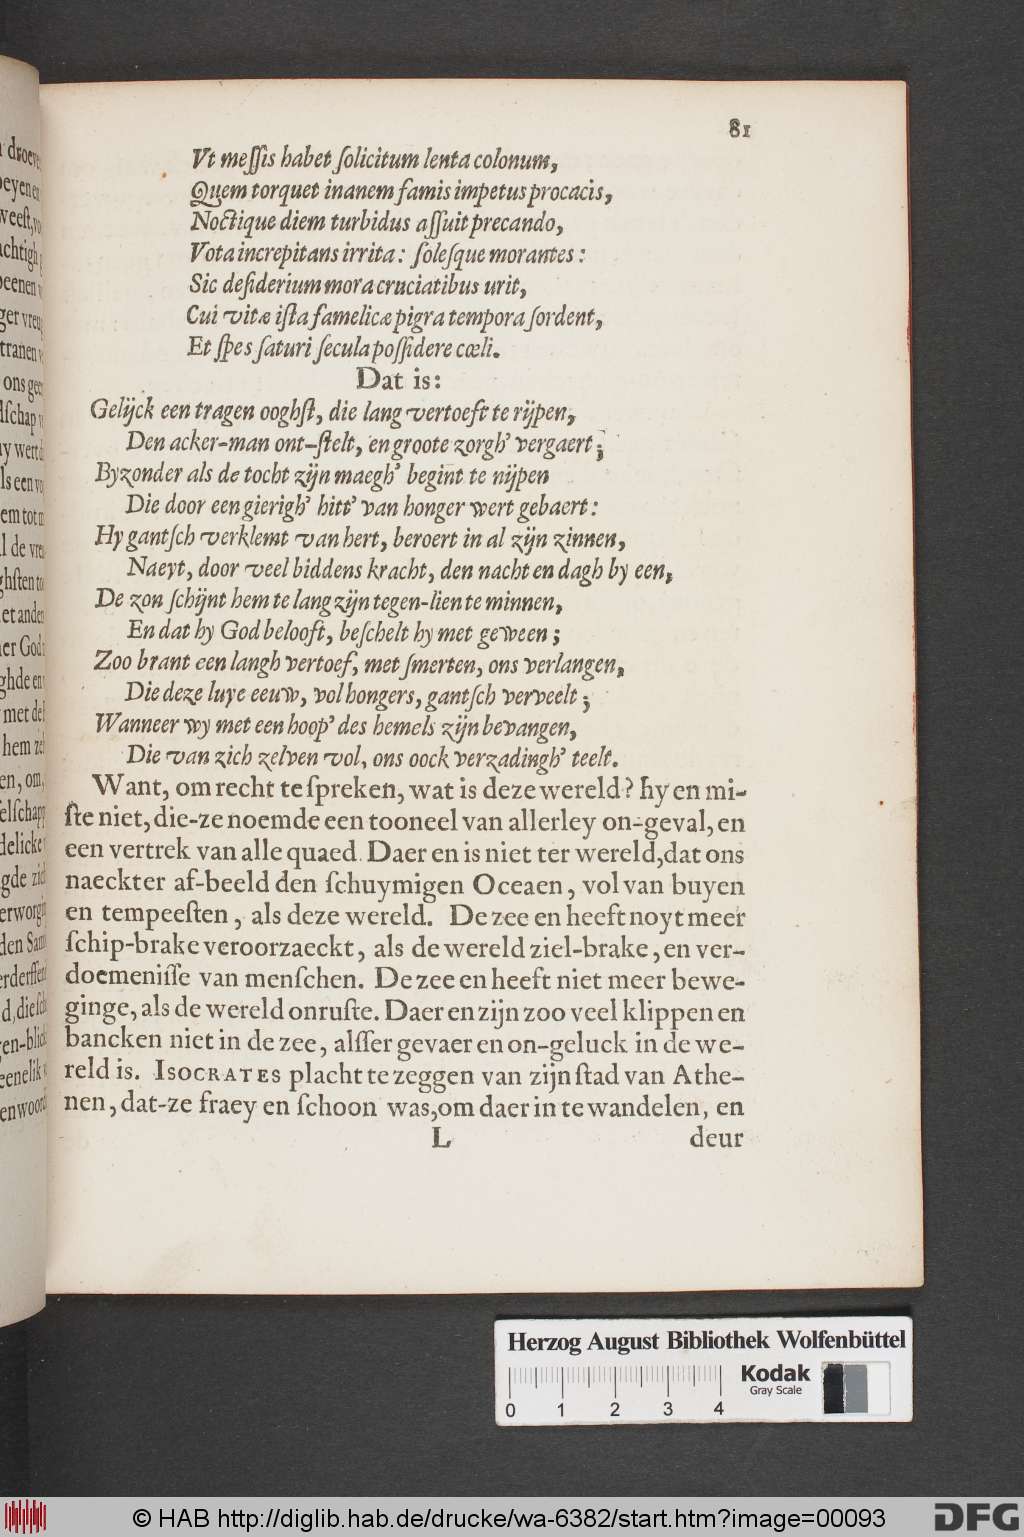 81
Vt meſſis habet ſolicitum lenta colonum,
Quem torquet inanem famis impetus procacis,
Noctique diem turbidus aſſuit precando,
Vota increpitans irrita: ſoleſque morantes:
Sic deſiderium mora cruciatibus urit,
Cui vitæ iſta famelicæ pigra tempora ſordent,
Et ſpes ſaturi ſecula poſſidere cœli.
Dat is:
Gelijck een tragen ooghſt, die lang vertoeft te rijpen,
Den acker-man ont-ſtelt, en groote zorgh' vergaert;
Byzonder als de tocht zijn maegh' begint te nijpen
Die door een gierigh' hitt' van honger wert gebaert:
Hy gantſch verklemt van hert, beroert in al zijn zinnen,
Naeyt, door veel biddens kracht, den nacht en dagh by een,
De zon ſchijnt hem te lang zijn tegen-lien te minnen,
En dat hy God belooft, beſchelt hy met geween;
Zoo brant een langh vertoef, met ſmerten, ons verlangen,
Die deze luye eeuw, vol hongers, gantſch verveelt;
Wanneer wy met een hoop' des hemels zijn bevangen,
Die van zich zelven vol, ons oock verzadingh' teelt.
Want, om recht te ſpreken, wat is deze wereld? hy en mi-
ſte niet, die-ze noemde een tooneel van allerley on-geval, en
een vertrek van alle quaed. Daer en is niet ter wereld, dat ons
naeckter af-beeld den ſchuymigen Oceaen, vol van buyen
en tempeeſten, als deze wereld. De zee en heeft noyt meer
ſchip-brake veroorzaeckt, als de wereld ziel-brake, en ver-
doemeniſſe van menſchen. De zee en heeft niet meer bewe-
ginge, als de wereld onruſte. Daer en zijn zoo veel klippen en
bancken niet in de zee, alſſer gevaer en on-geluck in de we-
reld is. ISOCRATES placht te zeggen van zijn ſtad van Athe-
nen, dat-ze fraey en ſchoon was, om daer in te wandelen, en
L deur
Herzog August Bibliothek Wolfenbüttel
Kodak
Gray Scale
0 1 2 3 4
© HAB http://diglib.hab.de/drucke/wa-6382/start.htm?image=00093
DFG